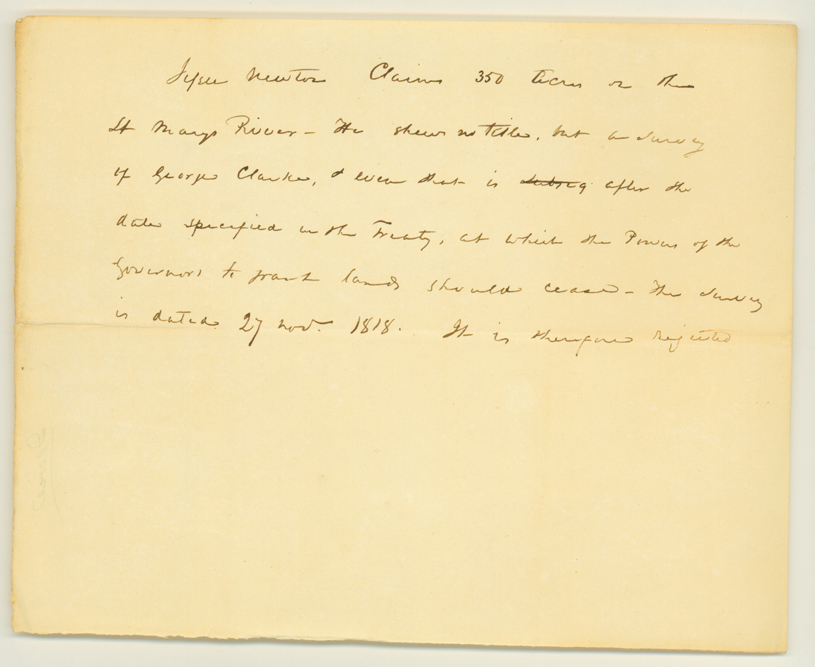 Jesse Newton Claims 350 Acres on the
St Marys River - He shews no title, but a Survey
of George Clarke, & even that is subseq after the
date specified in the Treaty, at which the Powers of the
Governors to grant lands should cease - The Survey
is dated 27 Nov. 1818. It is therefore rejected